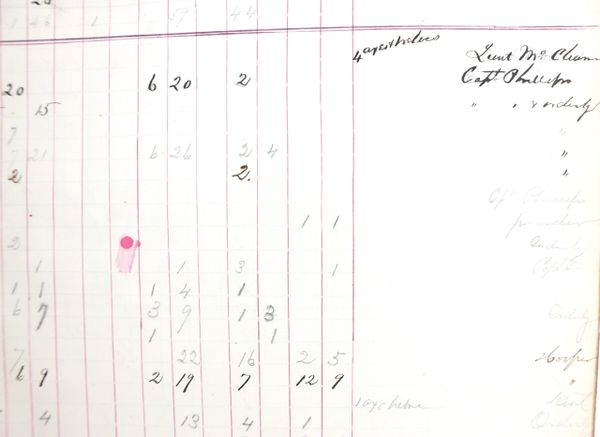 1 46 1 59 44
Lieut Mc Clean
20 6 20 2 Capt Phillips
15 " " & orderly
7 "
7 21 6 26 2 4 "
2 2. "
Cpt Phillips
1 1
2 Orderly
1 1 3 1
1 1 1 4 1
6 7 3 9 1 3 Orderly
1 1
7 22 16 2 5 Hooper
6 9 2 19 7 12 9 "
4 13 4 1